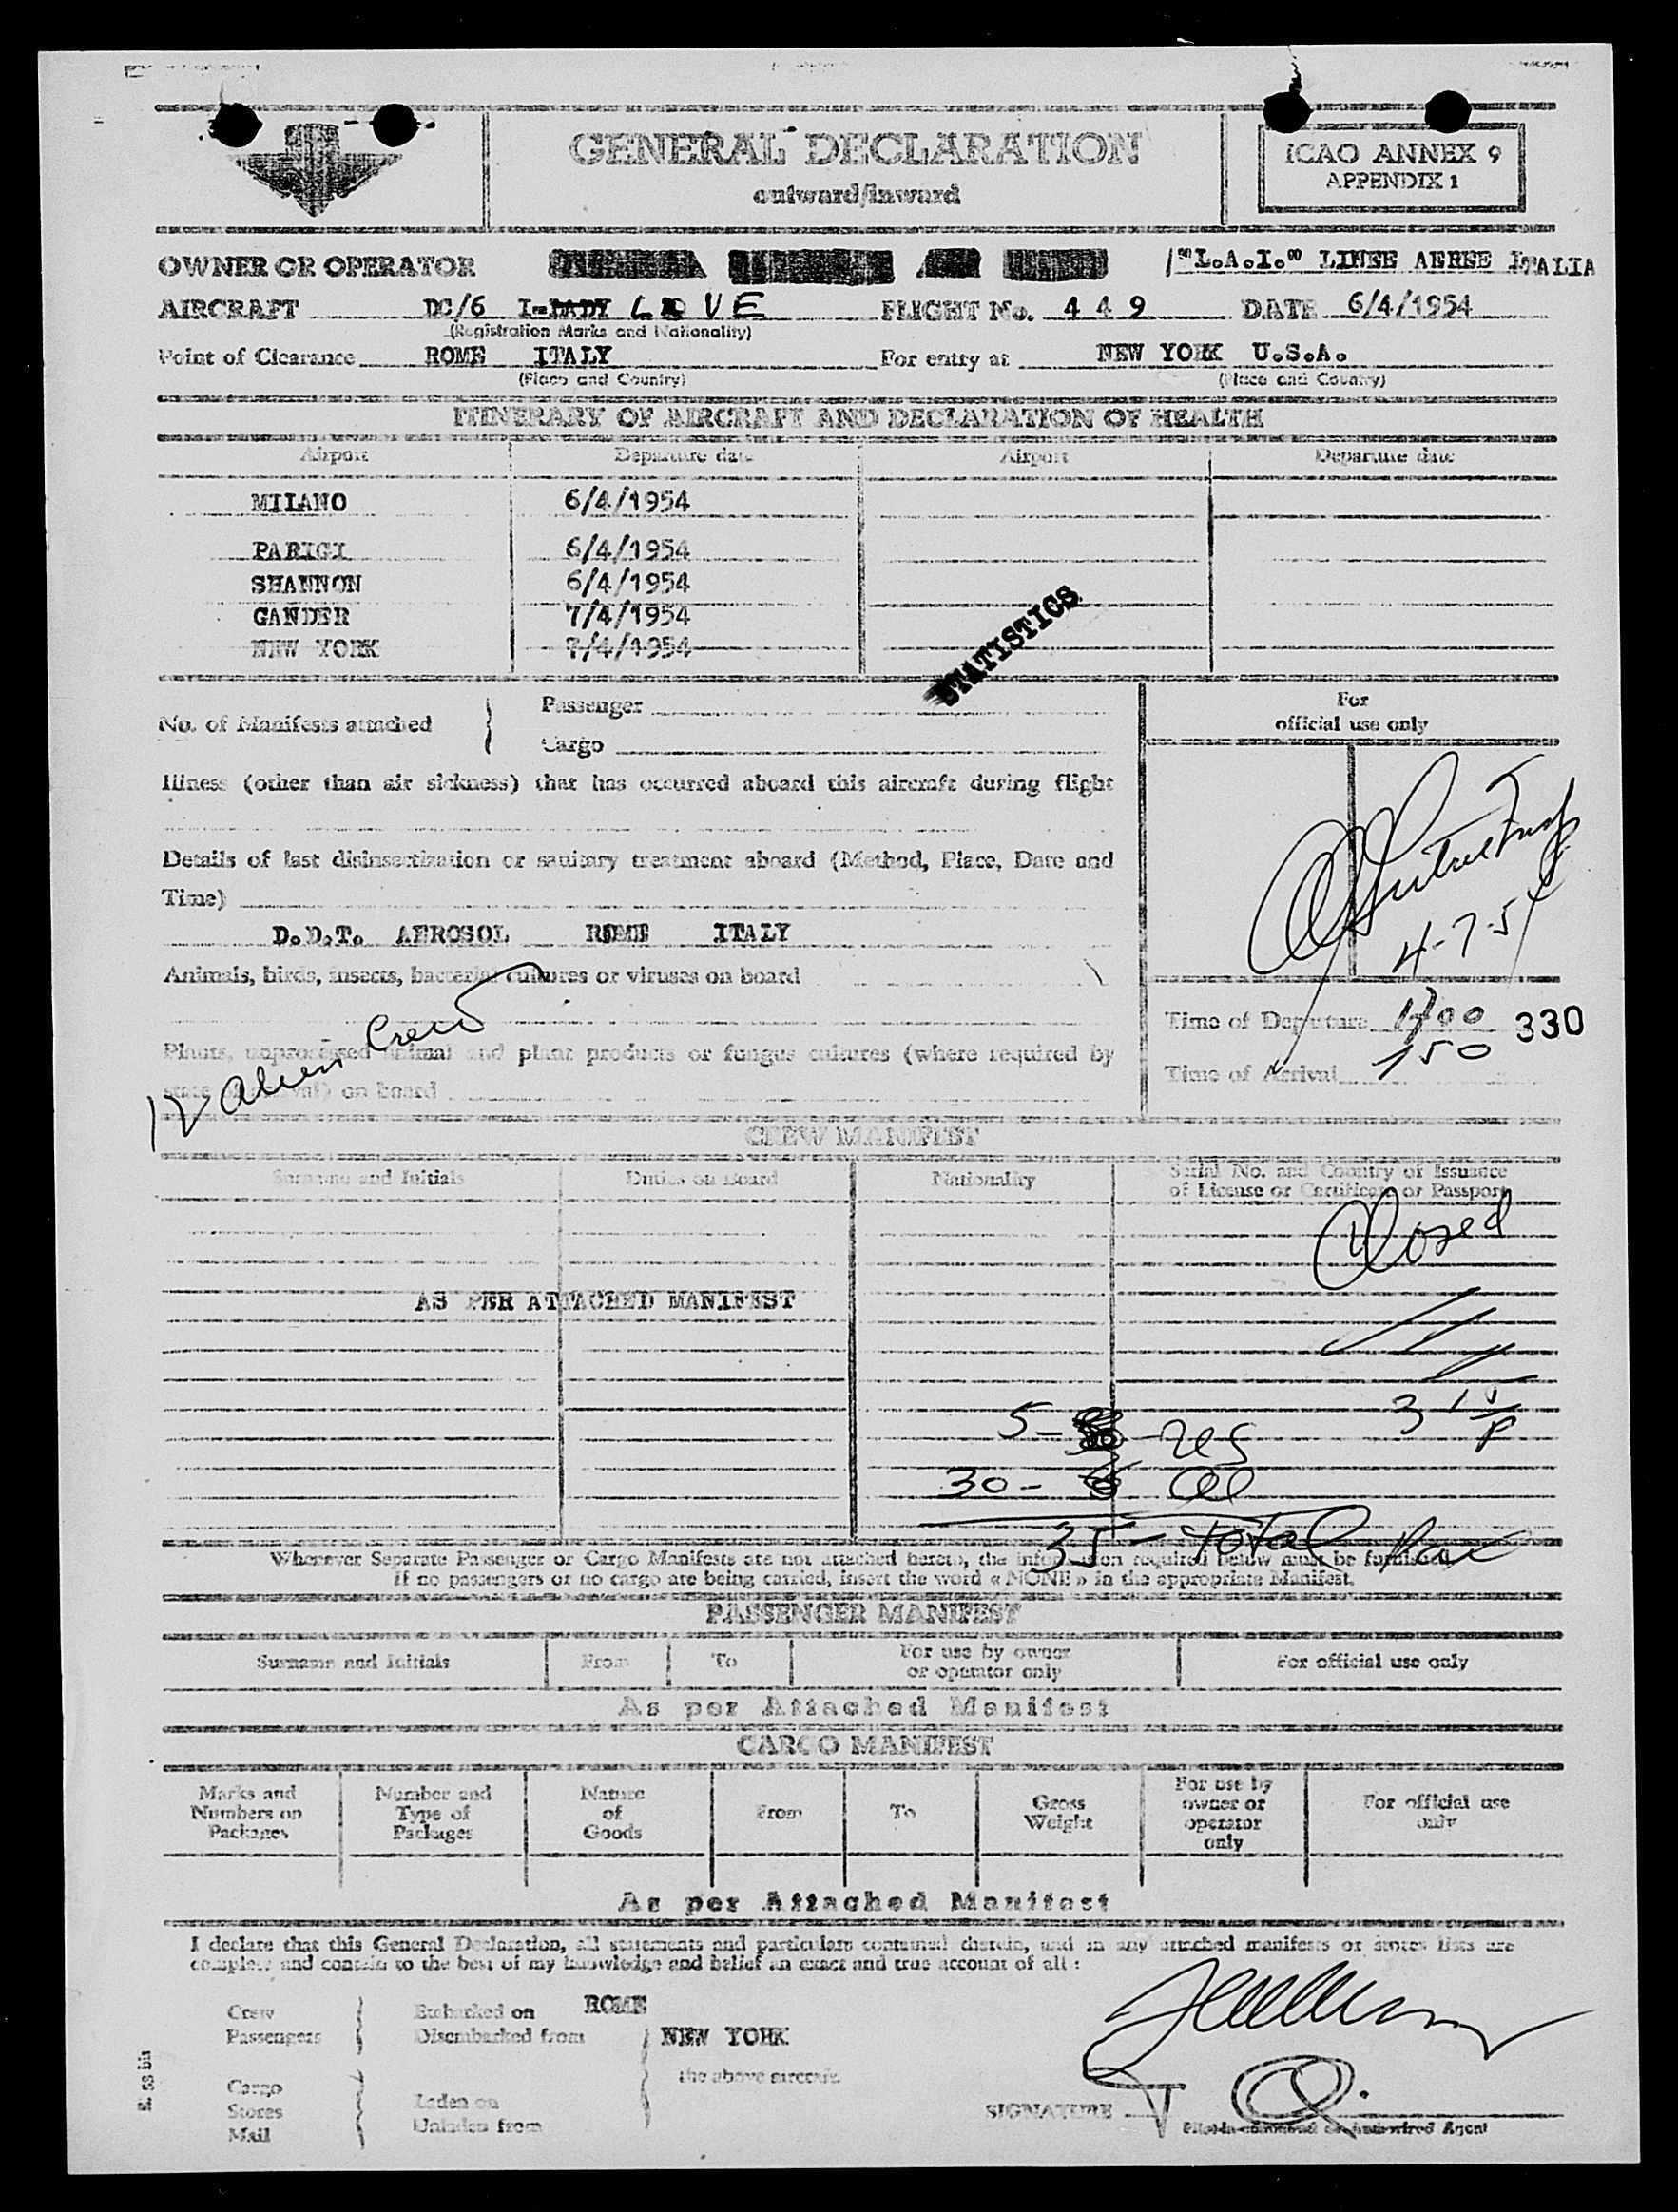 GENERAL DECLARATION
outward/inward
ICAO ANNEX 9
APPENDIX 1
OWNER OR OPERATOR "L.A.I." LINEE AEREE ITALIA
AIRCRAFT DC/6 I- LOVE FLIGHT No. 449 DATE 6/4/1954
(Registration Marks and Nationality)
Point of Clearance ROME ITALY For entry at NEW YORK U.S.A.
(Place and Country) (Place and Country)
ITINERARY OF AIRCRAFT AND DECLARATION OF HEALTH
Airport Departure date Airport Departure date
MILANO 6/4/1954
PARIGI 6/4/1954
SHANNON 6/4/1954
GANDER 7/4/1954
NEW YORK 7/4/1954
STATISTICS
No. of Manifests attached
Passenger
Cargo
For
official use only
Illness (other than air sickness) that has occurred aboard this aircraft during flight
Details of last disinsectization or sanitary treatment aboard (Method, Place, Date and
Time)
D.D.T. AEROSOL ROME ITALY
4-7-54
Animals, birds, insects, bacterial cultures or viruses on board
Time of Departure 330
Plants, unprocessed animal and plant products or fungus cultures (where required by
state of arrival) on board
Time of Arrival 150
12 alien Crew
CREW MANIFEST
Surname and Initials Duties on Board Nationality Serial No. and Country of Issuance
of License or Certificate or Passport
Closed
AS PER ATTACHED MANIFEST
5- res
30-
35- Total Pax
Whenever Separate Passenger or Cargo Manifests are not attached hereto, the information required below must be furnished.
If no passengers or no cargo are being carried, insert the word « NONE » in the appropriate Manifest.
PASSENGER MANIFEST
Surname and Initials From To For use by owner
or operator only For official use only
As per Attached Manifest
CARGO MANIFEST
Marks and
Numbers on
Packages
Number and
Type of
Packages
Nature
of
Goods
From To
Gross
Weight
For use by
owner or
operator
only
For official use
only
As per Attached Manifest
I declare that this General Declaration, all statements and particulars contained therein, and in any attached manifests or stores lists are
complete and contain to the best of my knowledge and belief an exact and true account of all :
Crew
Passengers
Embarked on ROME
Disembarked from NEW YORK
the above aircraft.
Cargo
Stores
Mail
Laden on
Unladen from
SIGNATURE
Pilot-in-command or Authorized Agent